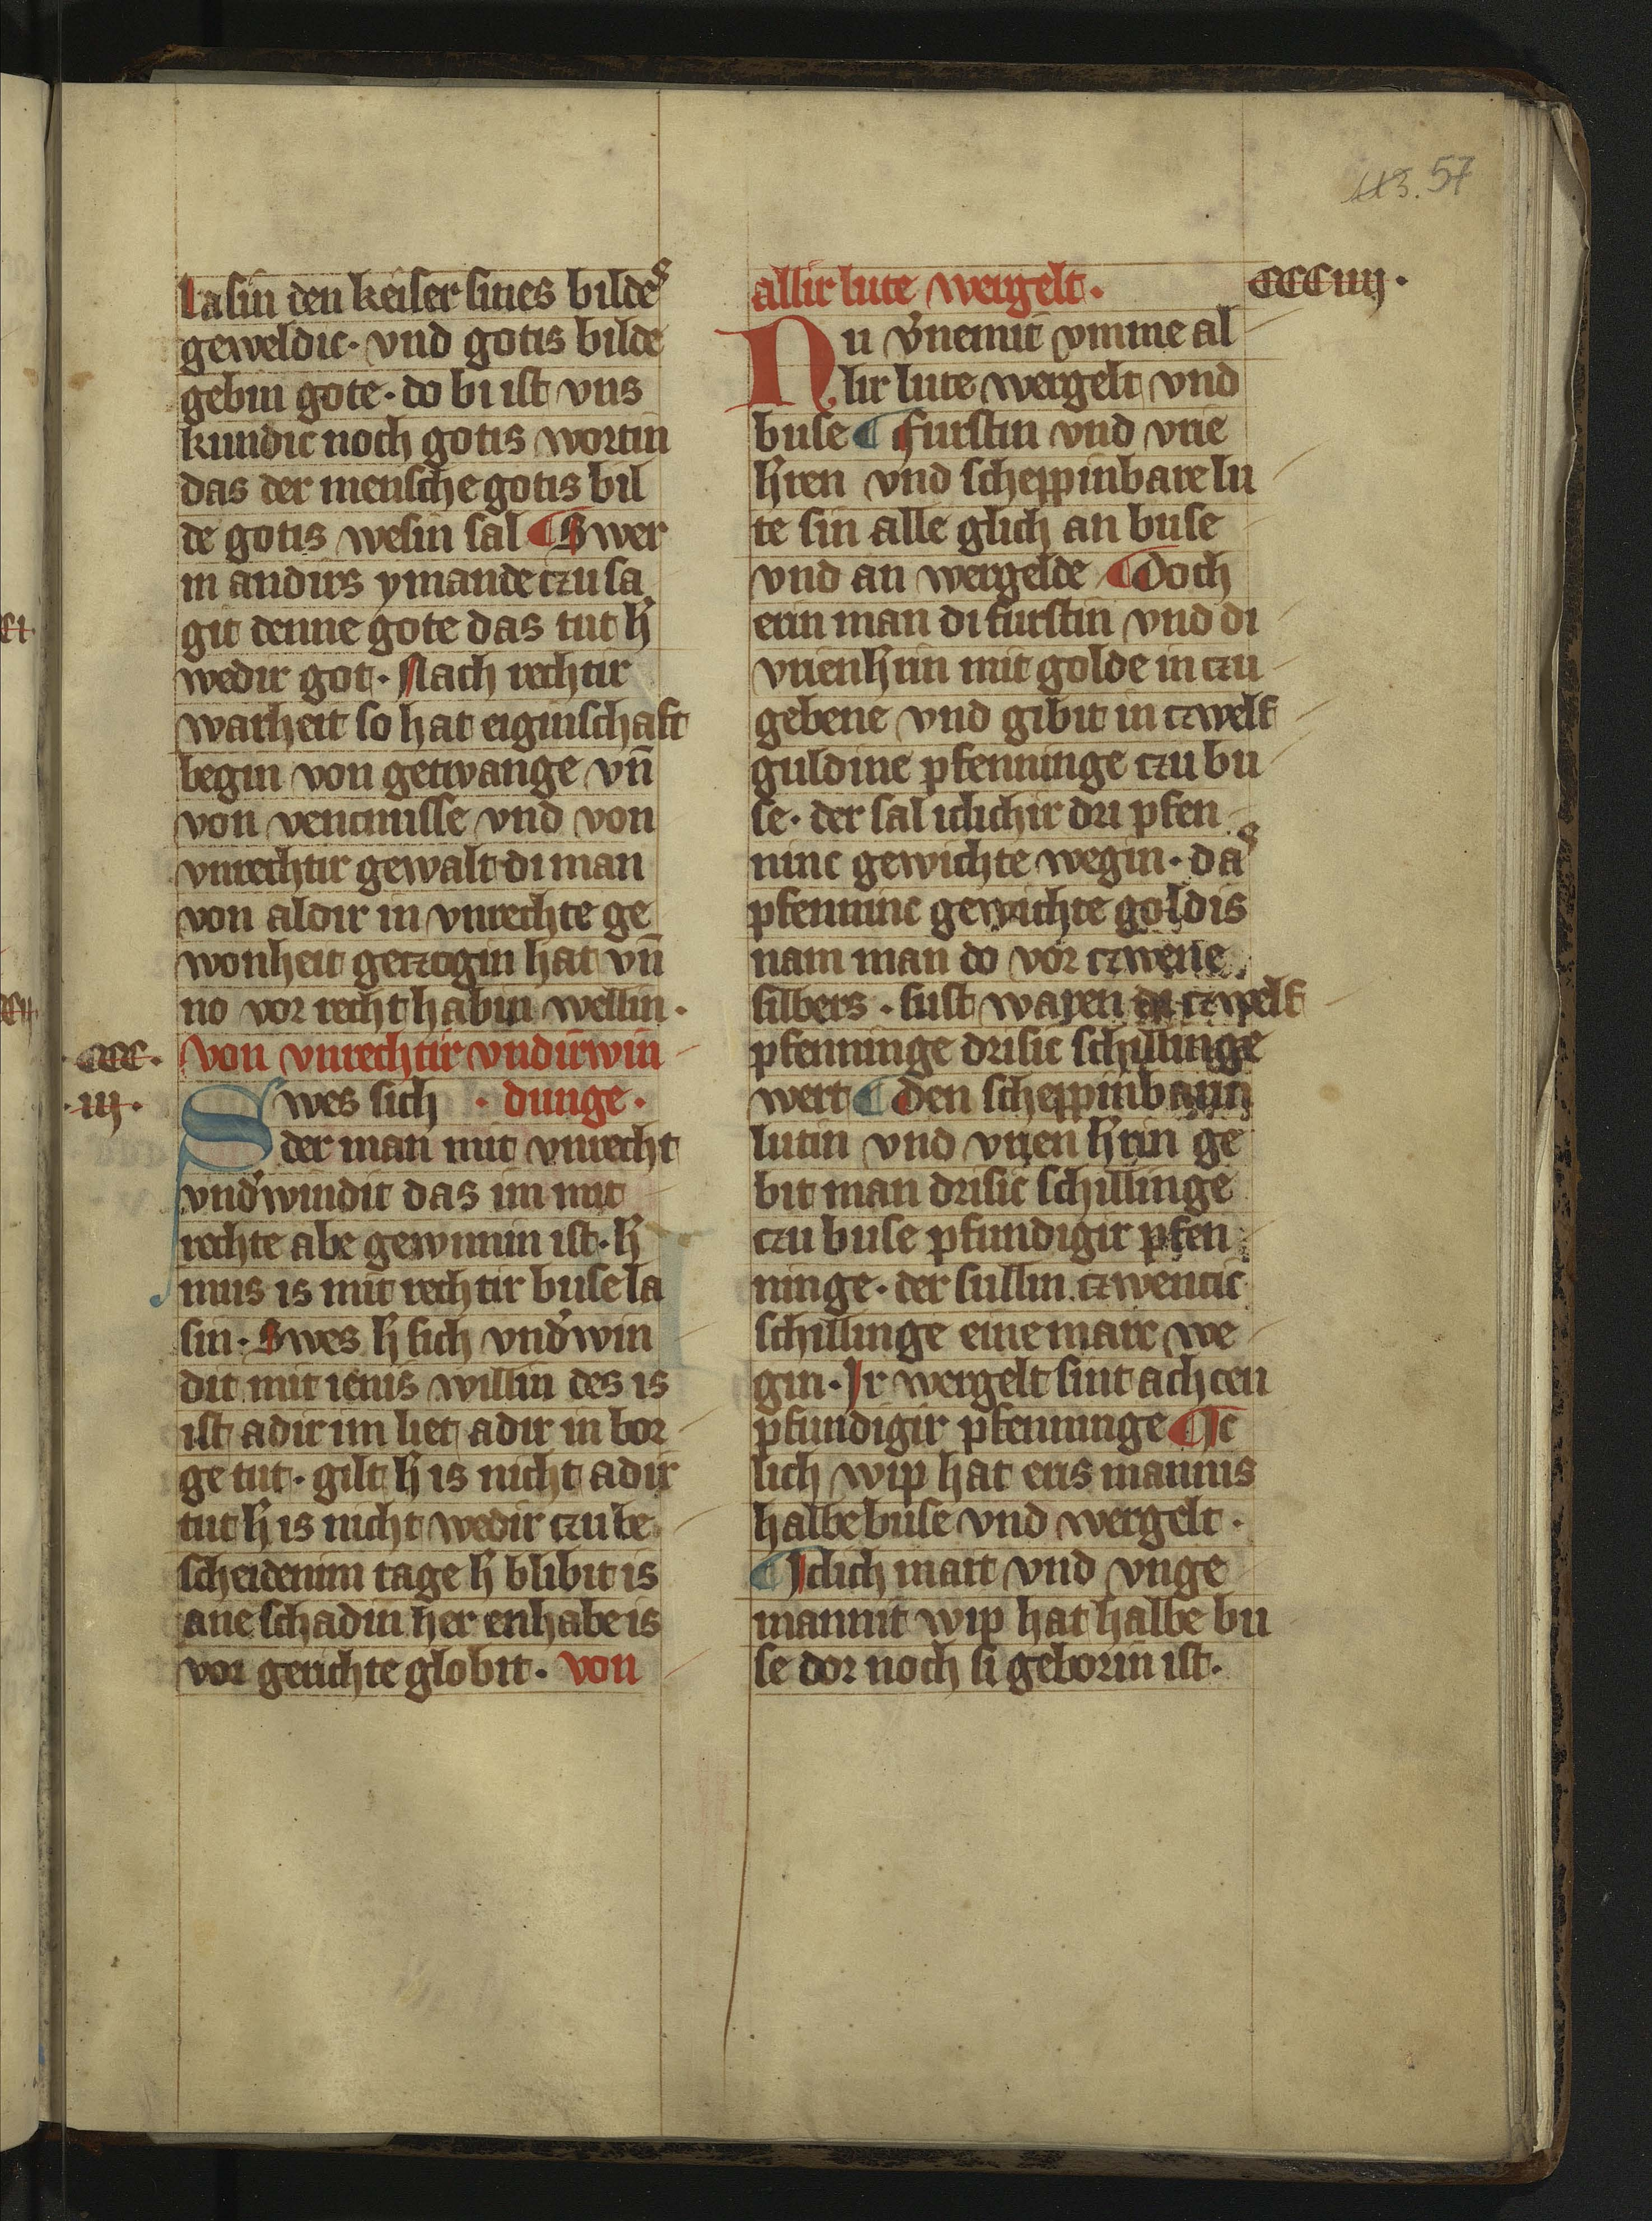 113. 57
lasin den keiser sines bildeˢ
geweldic · vnd gotis bilde
gebin gote · do bi ist vns
kundic noch gotis wortin
das der mensche gotis bil
de gotis wesin sal ¶ Swer
in andirs ymande czu sa
git denne gote das tut h̄
wedir got · Nach rechtir
warheit so hat eiginschaft
begin von getwange vn̄
von vencnisse vnd von
vnrechtir gewalt di man
von aldir in vnrechte ge
wonheit geczogin hat vn̄
no vor recht habin wellin ·
· ccc · von vnrechtir vndirwin
· iij · Swes sich · dunge ·
der man mit vnrecht
vnd'windit das im mit
rechte abe gewunnin ist · h̄
mus is mit rechtir buse la
sin · Swes h̄ sich vnd'win
dit mit ienis willin des is
ist adir im liet adir in bor
ge tut · gilt h̄ is nicht adir
tut h̄ is nicht wedir czu be
scheidenim tage h̄ blibit is
ane schadin her enhabe is
vor gerichte globit · von
allir lute wergelt · CCCiiij ·
Nu v'nemit vmme al
lir lute wergelt vnd
buse ¶ furstin vnd vrie
h̄ren vnd scheppinbare lu
te sin alle glich an buse
vnd an wergelde ¶ Doch
erin man di furstin vnd di
vrien h̄rin mit golde in czu
gebene vnd gibit in czwelf
guldine pfenninge czu bu
se · der sal iclichir dri pfen
ninc gewichte wegin · daˢ
pfenninc gewichte goldis
nam man do vor czwene
silbers · sust waren di czwelf
pfenninge drisic schillinge
wert ¶ Den scheppinbarin
lutin vnd vrien h̄rin ge
bit man drisic schillinge
czu buse pfundigir pfen
ninge · der sullin czwentic
schillinge eine marc we
gin · Ir wergelt sint achcen
pfundigir pfenninge ¶ Ic
lich wip hat eris mannis
halbe buse vnd wergelt ·
¶ Iclich mait vnd vnge
mannit wip hat halbe bu
se dor noch si geborin ist ·